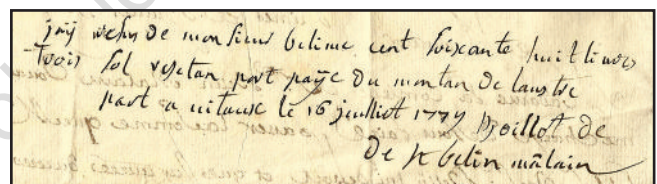 jay resu de monsieur belime cent soixante huit livres
trois sol restan port payé du montan de lautre
part a vitause le 16 juilliot 1779 Droillot de
De st belin mâlain